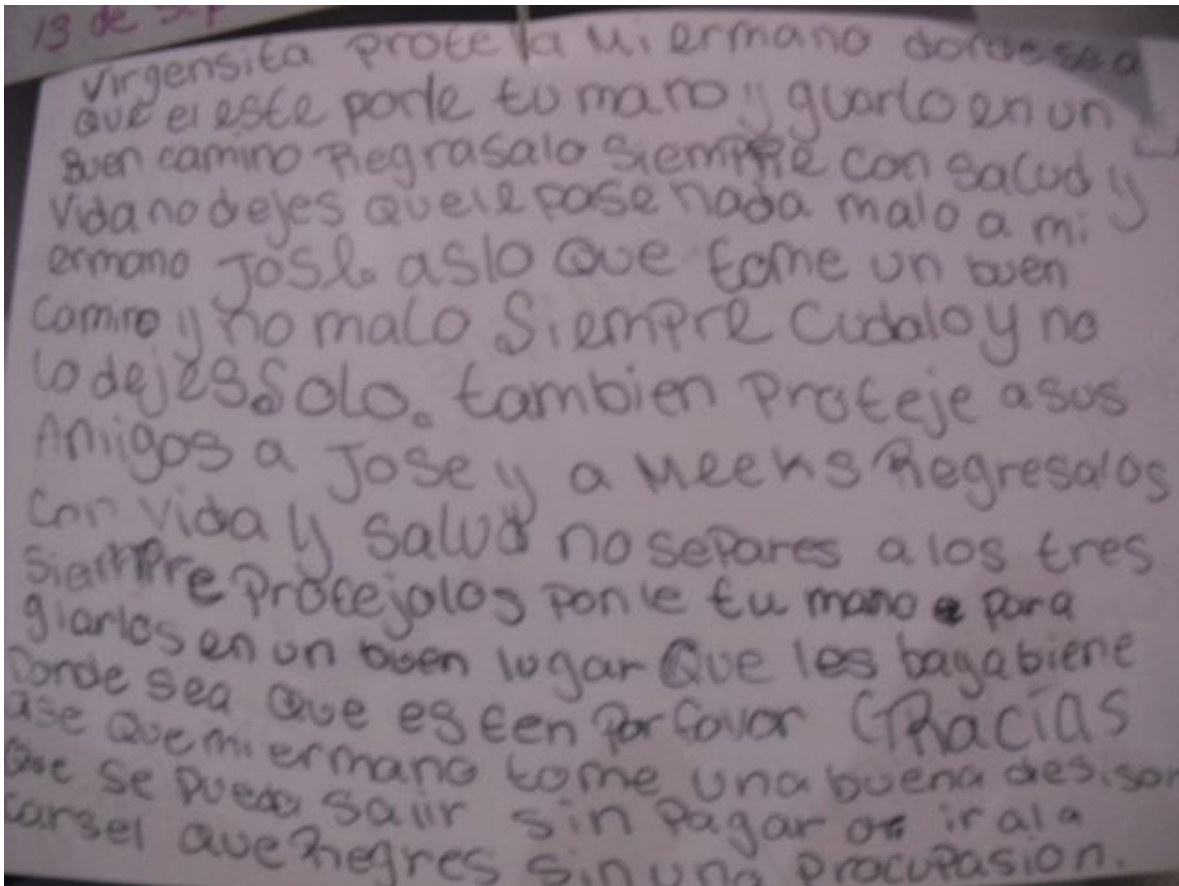 13 de Sep
Virgensita proteja Mi ermano donde sea
que el este ponle tu mano y guarlo en un
Buen camino Regrasalo Siempre con salud y
Vida no dejes que le pase nada malo a mi
ermano Jose aslo que tome un buen
Camino y no malo Siempre Cudalo y no
lo dejes Solo. tambien Proteje a sus
Amigos a Jose y a Meeks Regresalos
Con vida y salud no separes a los tres
Siempre Protejolos Ponle tu mano para
giarlos en un buen lugar Que les bagabiene
Donde sea que esteen Por favor GRacias
ase que mi ermano tome una buena desison
que se pueda salir sin Pagar o ir a la
carsel que Regres sin una Procupasion.